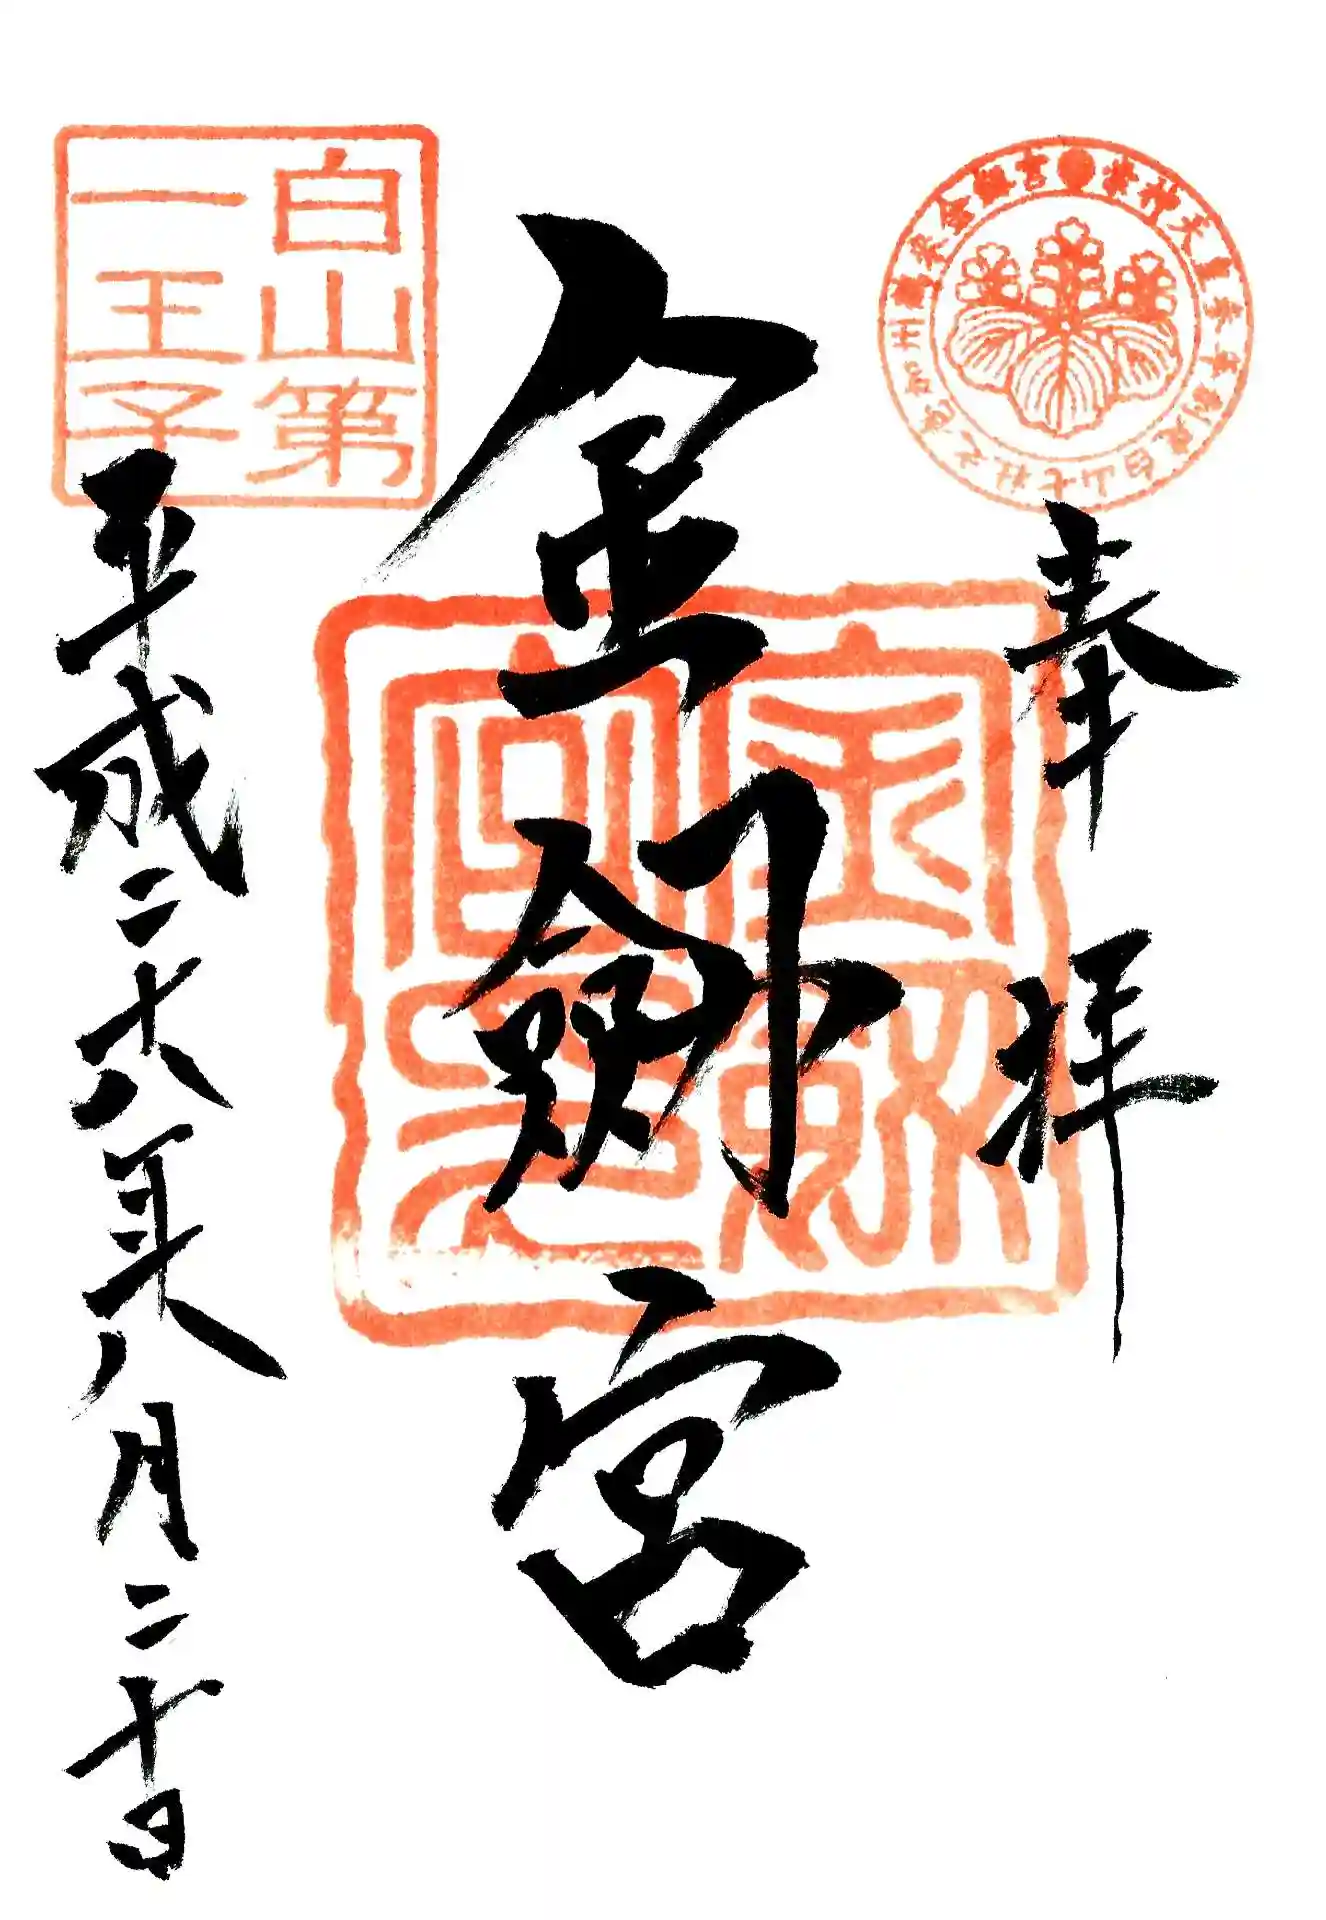 奉拝
金劔宮
白山第
一王子
平成二十六年八月二十日